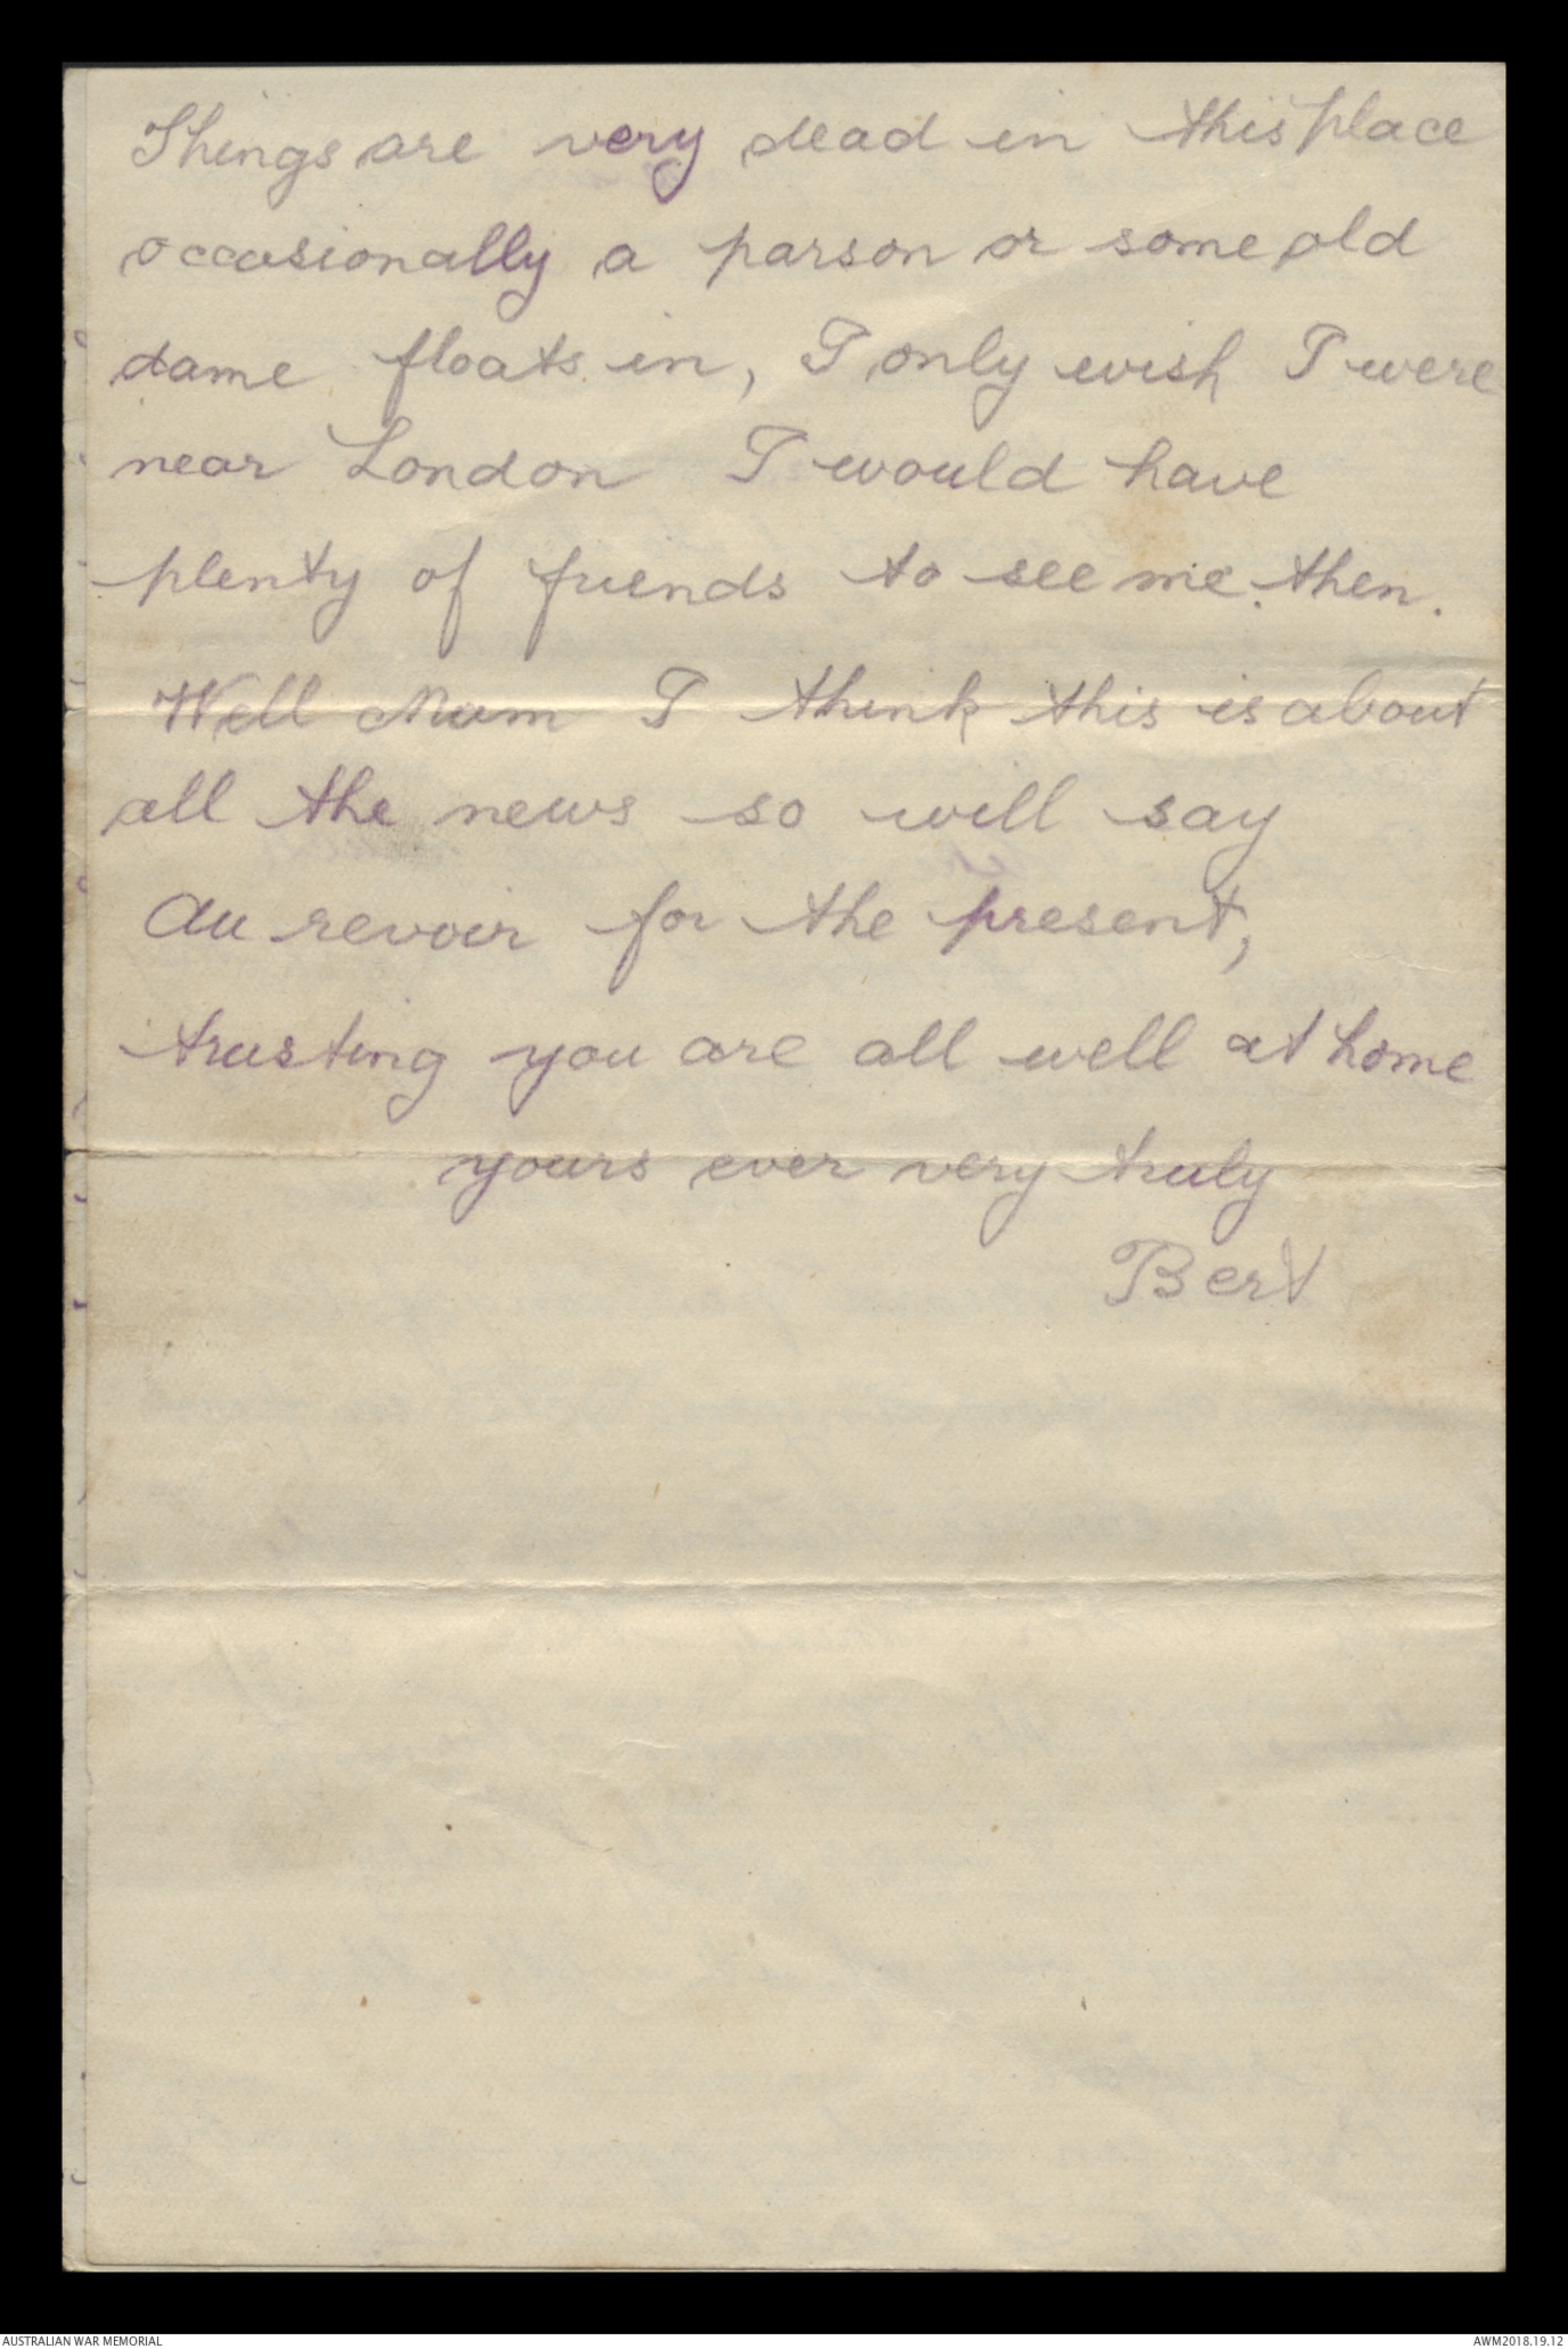 Things are very dead in this place
occasionally a parson or some old
dame floats in, I only wish I were
near London I would have
plenty of friends to see me then.
Well Mum I think this is about
all the news so will say
Au revoir for the present,
trusting you are all well at home
yours ever very truly
Bert
AUSTRALIAN WAR MEMORIAL
AWM2018.19.12